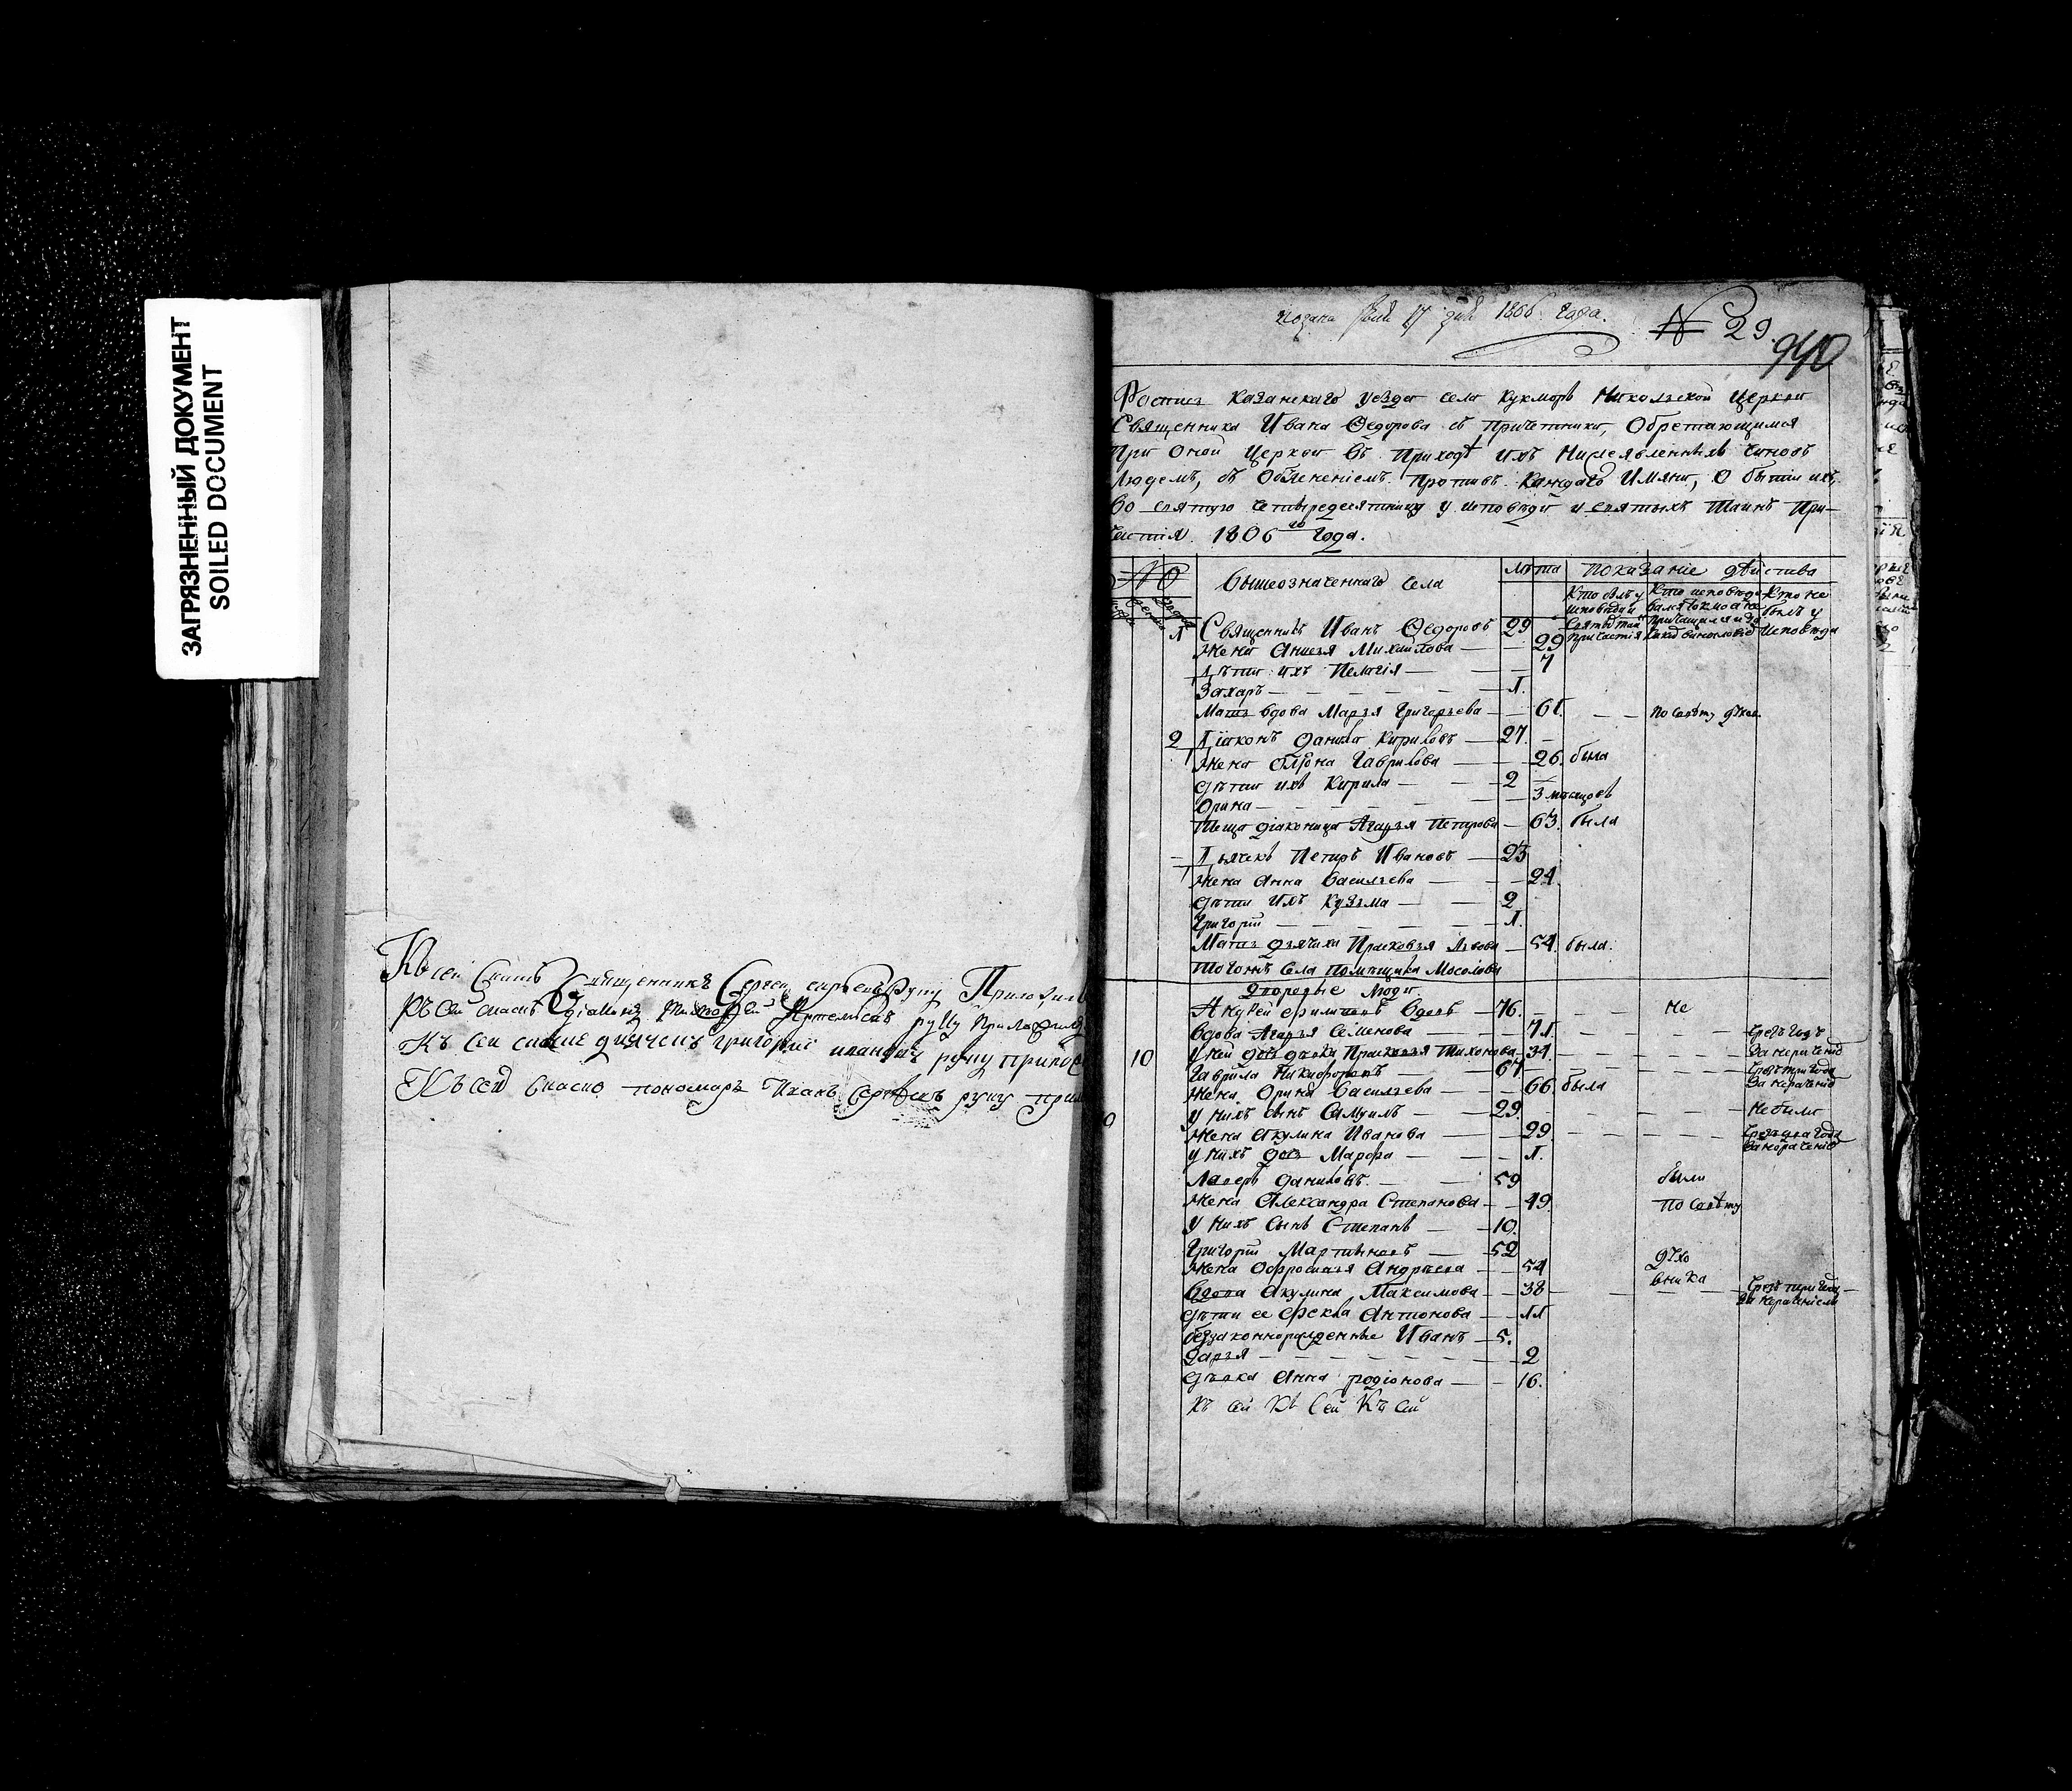 ЗАГРЯЗНЕННЫЙ ДОКУМЕНТ
SOILED DOCUMENT
Къ сей Священникъ Сергей руку Приложилъ
Къ сей діаконъ руку приложилъ
Къ сей дьячекъ григорий ивановъ руку
Къ сей пономарь Иванъ руку
17 1806 года.
№ 29.
940
Роспись Казанскаго уезда села Кукморъ Николаской церкви
Священника Ивана Ѳедорова съ причетники, Обретающимся
При Оной Церкви въ приходѣ ихъ Нижеявленныхъ чиновъ
людемъ, съ Обяснениемъ противъ каждаго Имяни, О бытии ихъ
во святую четыредесятницу у исповѣди и святыхъ таинъ При-
частія. 1806 го года.
№ вышеозначеннаго села Лѣта показаніе дѣйства
Кто былъ у исповѣди и святыхъ таинъ причастія
Кто не былъ у исповѣди
1 Священникъ Иванъ Ѳедоровъ 29
жена Михаилова 29
дѣти ихъ Пелагія 7
Захаръ 1.
Мать вдова Марья Григорьева 61. по совѣту
2 Діаконъ Данила Кириловъ 27.
жена Гаврилова 26. была
дѣти ихъ Кирила 2
Орина 3 месяцовъ
теща діаконица Агафья Петрова 63. была
Дьячекъ Петръ Ивановъ 23
жена Анна Васильева 24.
дѣти ихъ Кузьма 2
Григорій 1.
Мать дьячиха Прасковья Львова 54. была.
того жъ села помещика Мосолова
Дворовые люди.
Филиповъ вдовъ 76. не
вдова Агафья Семенова 71.
10 у ней дочь девка Прасковья Тихонова 31. за нерачение
Гаврила Никифоровъ 67 за нерачение
жена Орина Васильева 66. была
у нихъ сынъ Самуилъ 29. не были
жена Акулина Иванова 29. за нерачение
у нихъ дочь Марфа 1.
Лазерь Даниловъ 59 были
жена Александра Степанова 49. по совѣту
у нихъ сынъ Степанъ 10.
Григорій Мартыновъ 52 духо
жена Офросинья Андреева 54 вника
вдова Акулина Максимова 38 чрезъ три года за нерачениемъ
дѣти ее Фекла Антонова 11
беззаконнорожденные Иванъ 5.
Дарья 2
дѣвка Анна родіонова 16.
къ сей къ Сей Къ Сей